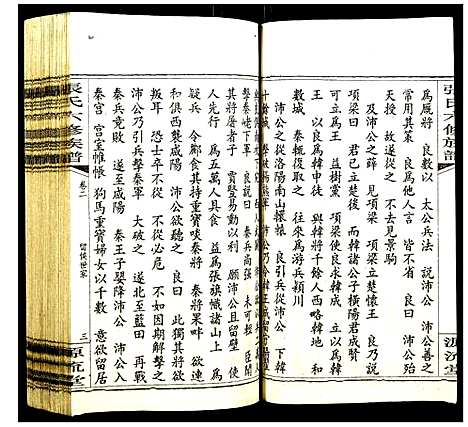 張氏六修族譜
源流堂
為厩將 良數以 太公兵法 說沛公 沛公善之
常用其策 良為他人言 皆不省 良曰 沛公殆
天授 故遂從之 不去見景駒
及沛公之薛 見項梁 項梁立楚懷王 良乃說
項梁曰 君已立楚後 而韓諸公子橫陽君成賢
可立為王 益樹黨 項梁使良求韓成 立以為韓
王 以良為韓 與韓將千餘人西略韓地
往來為游兵潁川
沛公之從洛陽南出轘轅 良引兵從沛公 下韓
十餘城
沛公乃令韓王成留守
擊秦嶢下軍 良說曰 秦兵尚強 未可輕 臣聞
其將屠者子 賈豎易動以利 願沛公且留壁 使
為五萬人具食 益為張旗幟諸山上 為
疑兵 令酈食其持重寶啖秦將 秦將果畔 欲連
和俱西襲咸陽 沛公欲聽之 良曰 此獨其將欲
叛耳 恐士卒不從 不從必危 不如因其解擊之
沛公乃引兵擊秦軍 大破之 遂北至藍田 再戰
秦兵竟敗 遂至咸陽 秦王子嬰降沛公 沛公入
秦宮 宮室帷帳 狗馬重寶婦女以千數 意欲留居
張氏六修族譜
卷二
留侯世家
三
源流堂